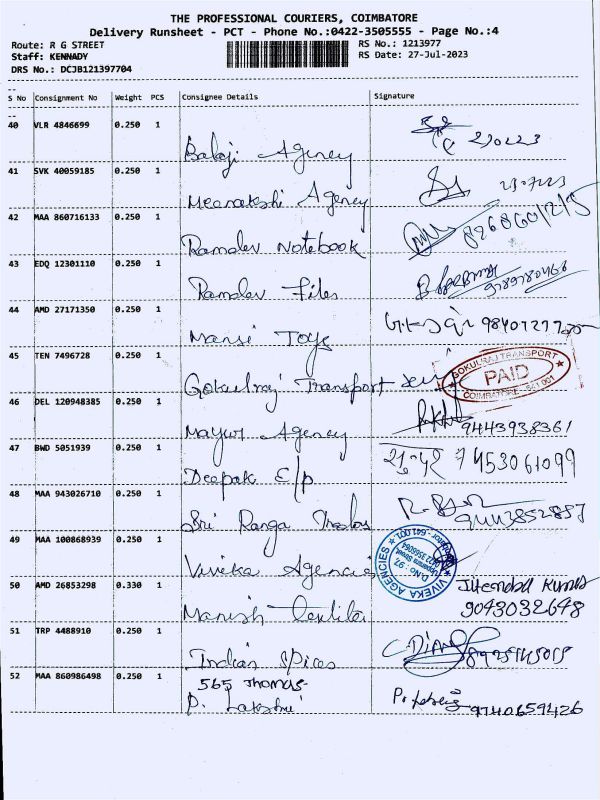 THE PROFESSIONAL COURIERS, COIMBATORE
Delivery Runsheet - PCT - Phone No.:0422-3505555 - Page No.:4
Route: R G STREET
RS No.: 1213977
Staff: KENNADY
RS Date: 27-Jul-2023
DRS No.: DCJB121397704
S No Consignment No Weight PCS Consignee Details Signature
40 VLR 4846699 0.250 1
Balaji Agency
41 SVK 40059185 0.250 1
Meenakshi Agency
42 MAA 860716133 0.250 1
Ramdev Notebook
43 EDQ 12301110 0.250 1
Ramdev Files
44 AMD 27171350 0.250 1
Mansi Toys
45 TEN 7496728 0.250 1
GOKULRAJ TRANSPORT
PAID
COIMBATORE - 641 001
Gokulraj Transport
46 DEL 120948385 0.250 1
Mayur Agency 9443938361
47 BWD 5051939 0.250 1
Deepak E/P 7453061099
48 MAA 943026710 0.250 1
Sri Ranga
49 MAA 100868939 0.250 1
VIVEKA AGENCIES
D.No : 97,
Viveka Agencies
50 AMD 26853298 0.330 1
Jitendra Kumar
Manish Textiles 9043032648
51 TRP 4488910 0.250 1
Indian Spices
52 MAA 860986498 0.250 1
565 Thomas
P. Lakshmi 9740659426